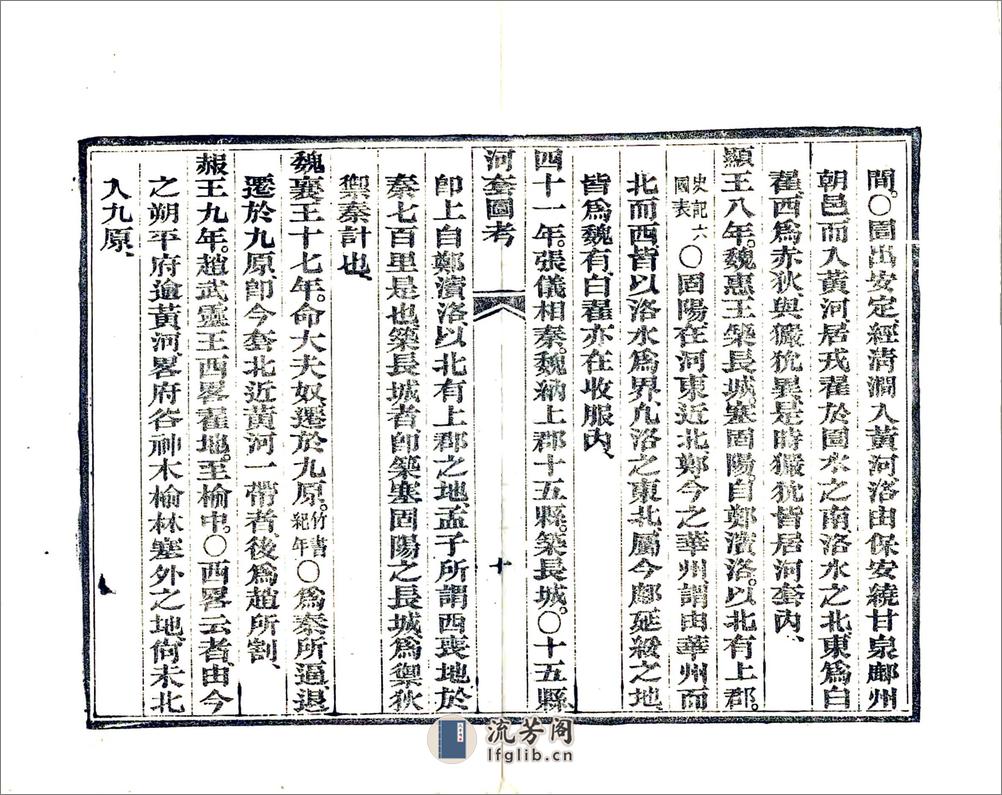 間。〇圁出安定經清澗入黃河洛由保安繞甘泉鄜州
朝邑而入黃河居戎翟於圁水之南洛水之北東爲白
翟、西爲赤狄、與玁狁異、是時玁狁皆居河套內、
顯王八年。魏惠王築長城。塞固陽。自鄭濱洛。以北有上郡。
史記六
國表
〇固陽在河東近北鄭今之華州謂由華州而
北而西皆以洛水爲界、凡洛之東北、屬今鄜延綏之地、
皆爲魏有、白翟亦在收服內、
四十一年。張儀相秦。魏納上郡十五縣。築長城。〇十五縣
河套圖考
十
卽上自鄭濱洛、以北有上郡之地、孟子所謂西喪地於
秦七百里是也、築長城者、卽築塞固陽之長城、爲禦狄
禦秦計也、
魏襄王十七年。命大夫奴。遷於九原。
竹書
紀年
〇爲秦所逼、退
遷於九原、卽今套北近黃河一帶者、後爲趙所割、
赧王九年。趙武靈王西畧翟地。至榆中。〇西畧云者、由今
之朔平府逾黃河、畧府谷神木榆林塞外之地、尙未北
入九原、
流芳阁
lfglib.cn